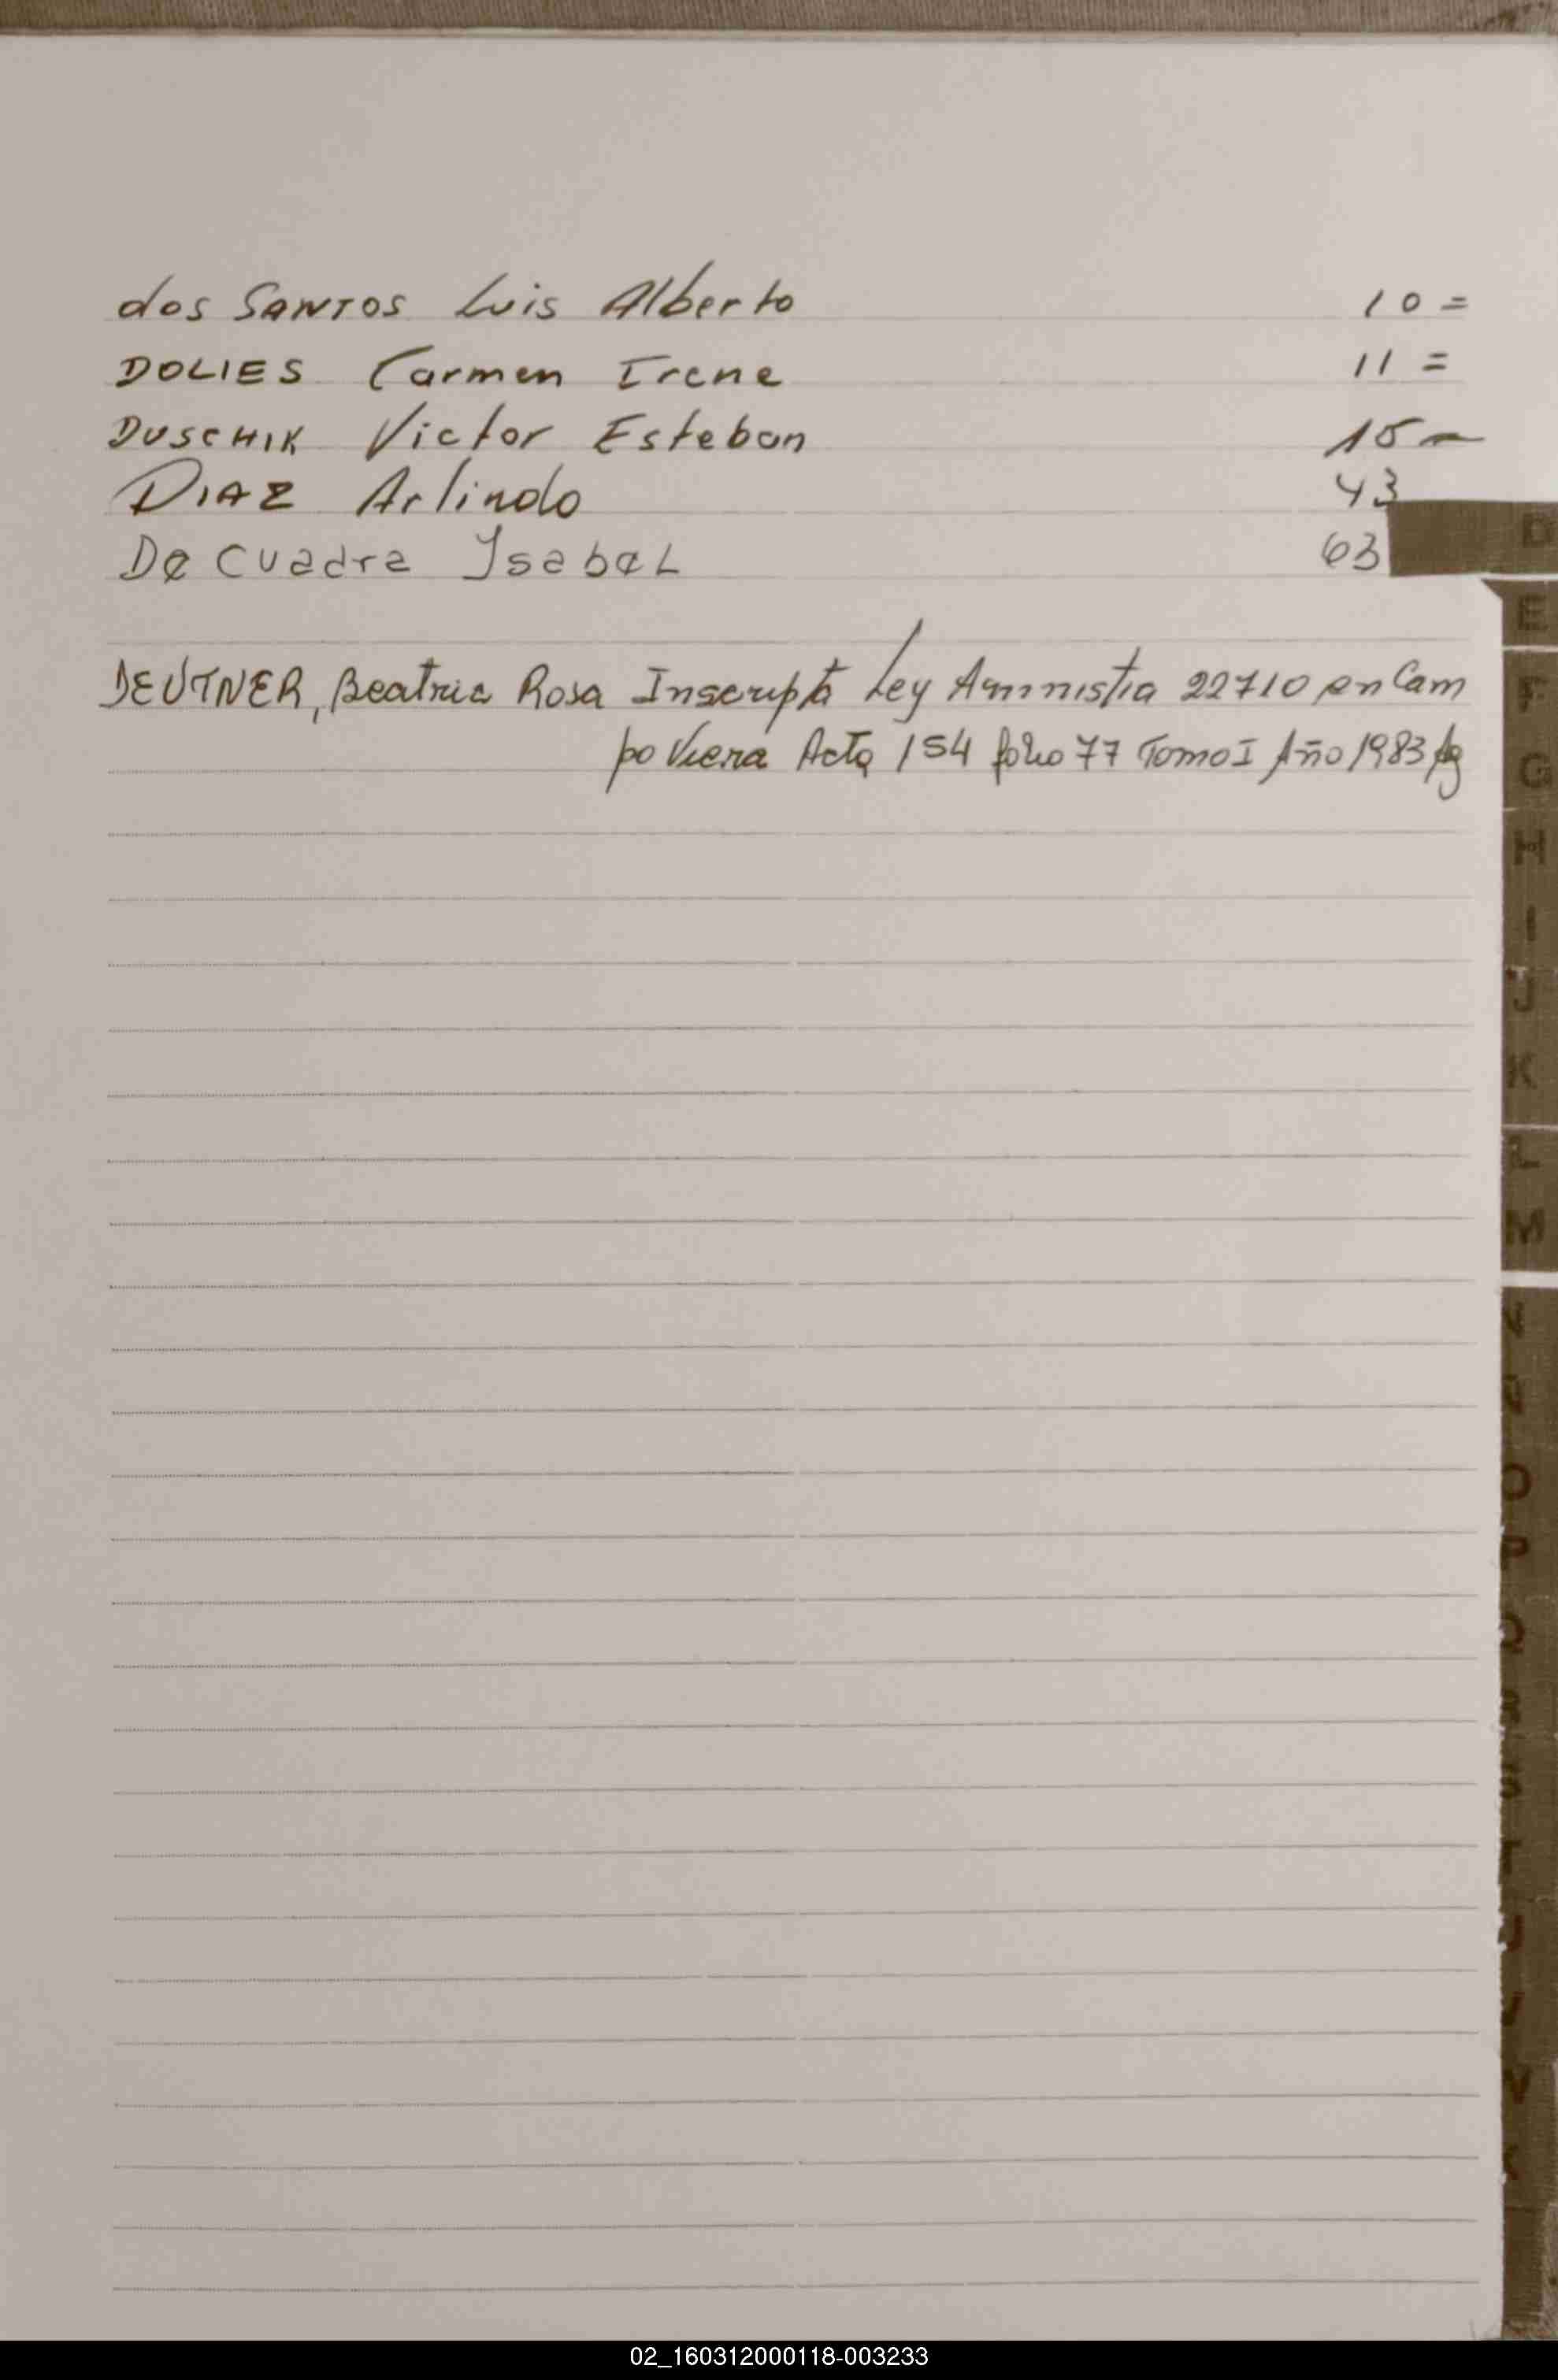 dos SANTOS Luis Alberto 10 =
DOLIES Carmen Irene 11 =
DUSCHIK Victor Esteban 15 —
DIAZ Arlindo 43
De cuadra Ysabel 63
DEUTNER, Beatriz Rosa Inscripta Ley Amnistia 22710 en Cam
po Viera Acta 154 folio 77 Tomo I Año 1983
D
E
F
G
H
I
J
K
L
M
N
Ñ
O
P
Q
R
S
T
U
V
02_160312000118-003233